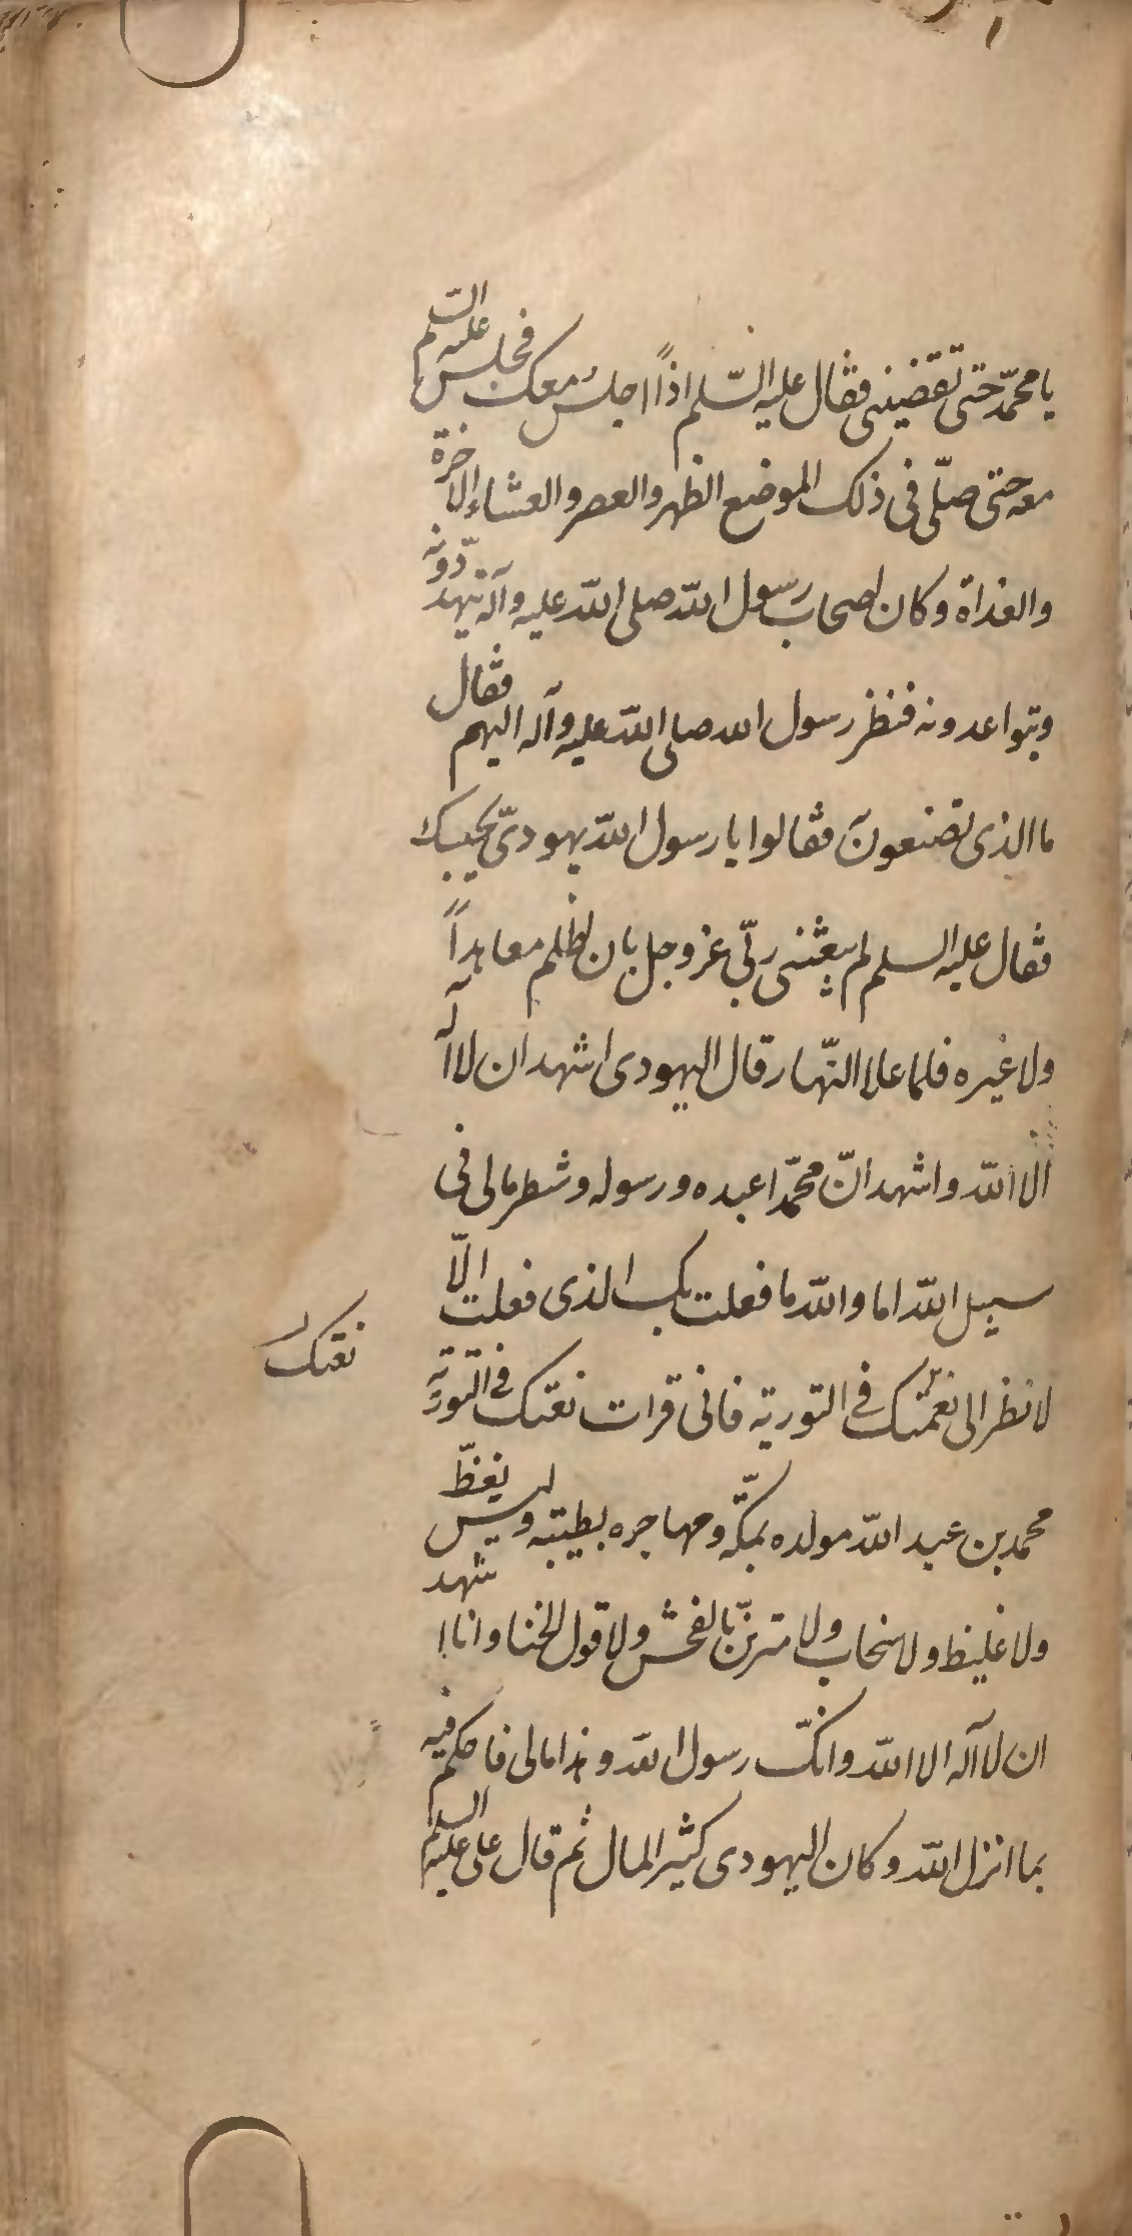 يا محمّد حتى تقضينى فقال عليه السّلم اذاً اجلسُ معك فجلس عليه السلم
معه حتى صلّى فى ذلك الموضع الظهر والعصر والعشاء الاخرة
والغداة وكان اصحاب رسول اللّه صلى اللّه عليه وآله يتهدّدونه
ويتواعدونه فنظر رسول الله صلى اللّه عليه وآله اليهم فقال
ما الذى تصنعون فقالوا يا رسول اللّه يهودىّ يحبسك
فقال عليه السلم لم يبعثنى ربّى عز وجل بان اظلم معاهداً
ولا غيره فلما علا النّهار قال اليهودى اشهد ان لا آله
الا اللّه واشهد انّ محمّدا عبده ورسوله وشطر مالى فى
سبيل اللّه اما واللّه ما فعلت بك الذى فعلت الّا
لانظر الى نعمتك فى التورية فانى قرات نعتك فى التورية
نعتك
محمد بن عبد اللّه مولده بمكّة ومهاجره بطيبة وليس بفظّ
ولا غليظ ولا سخاب ولا متزيّن بالفحش ولا قول الخنا وانا اشهد
ان لا آله الا اللّه وانّك رسول اللّه وهذا مالى فاحكم فيه
بما انزل اللّه وكان اليهودى كثير المال ثم قال على عليه السلم